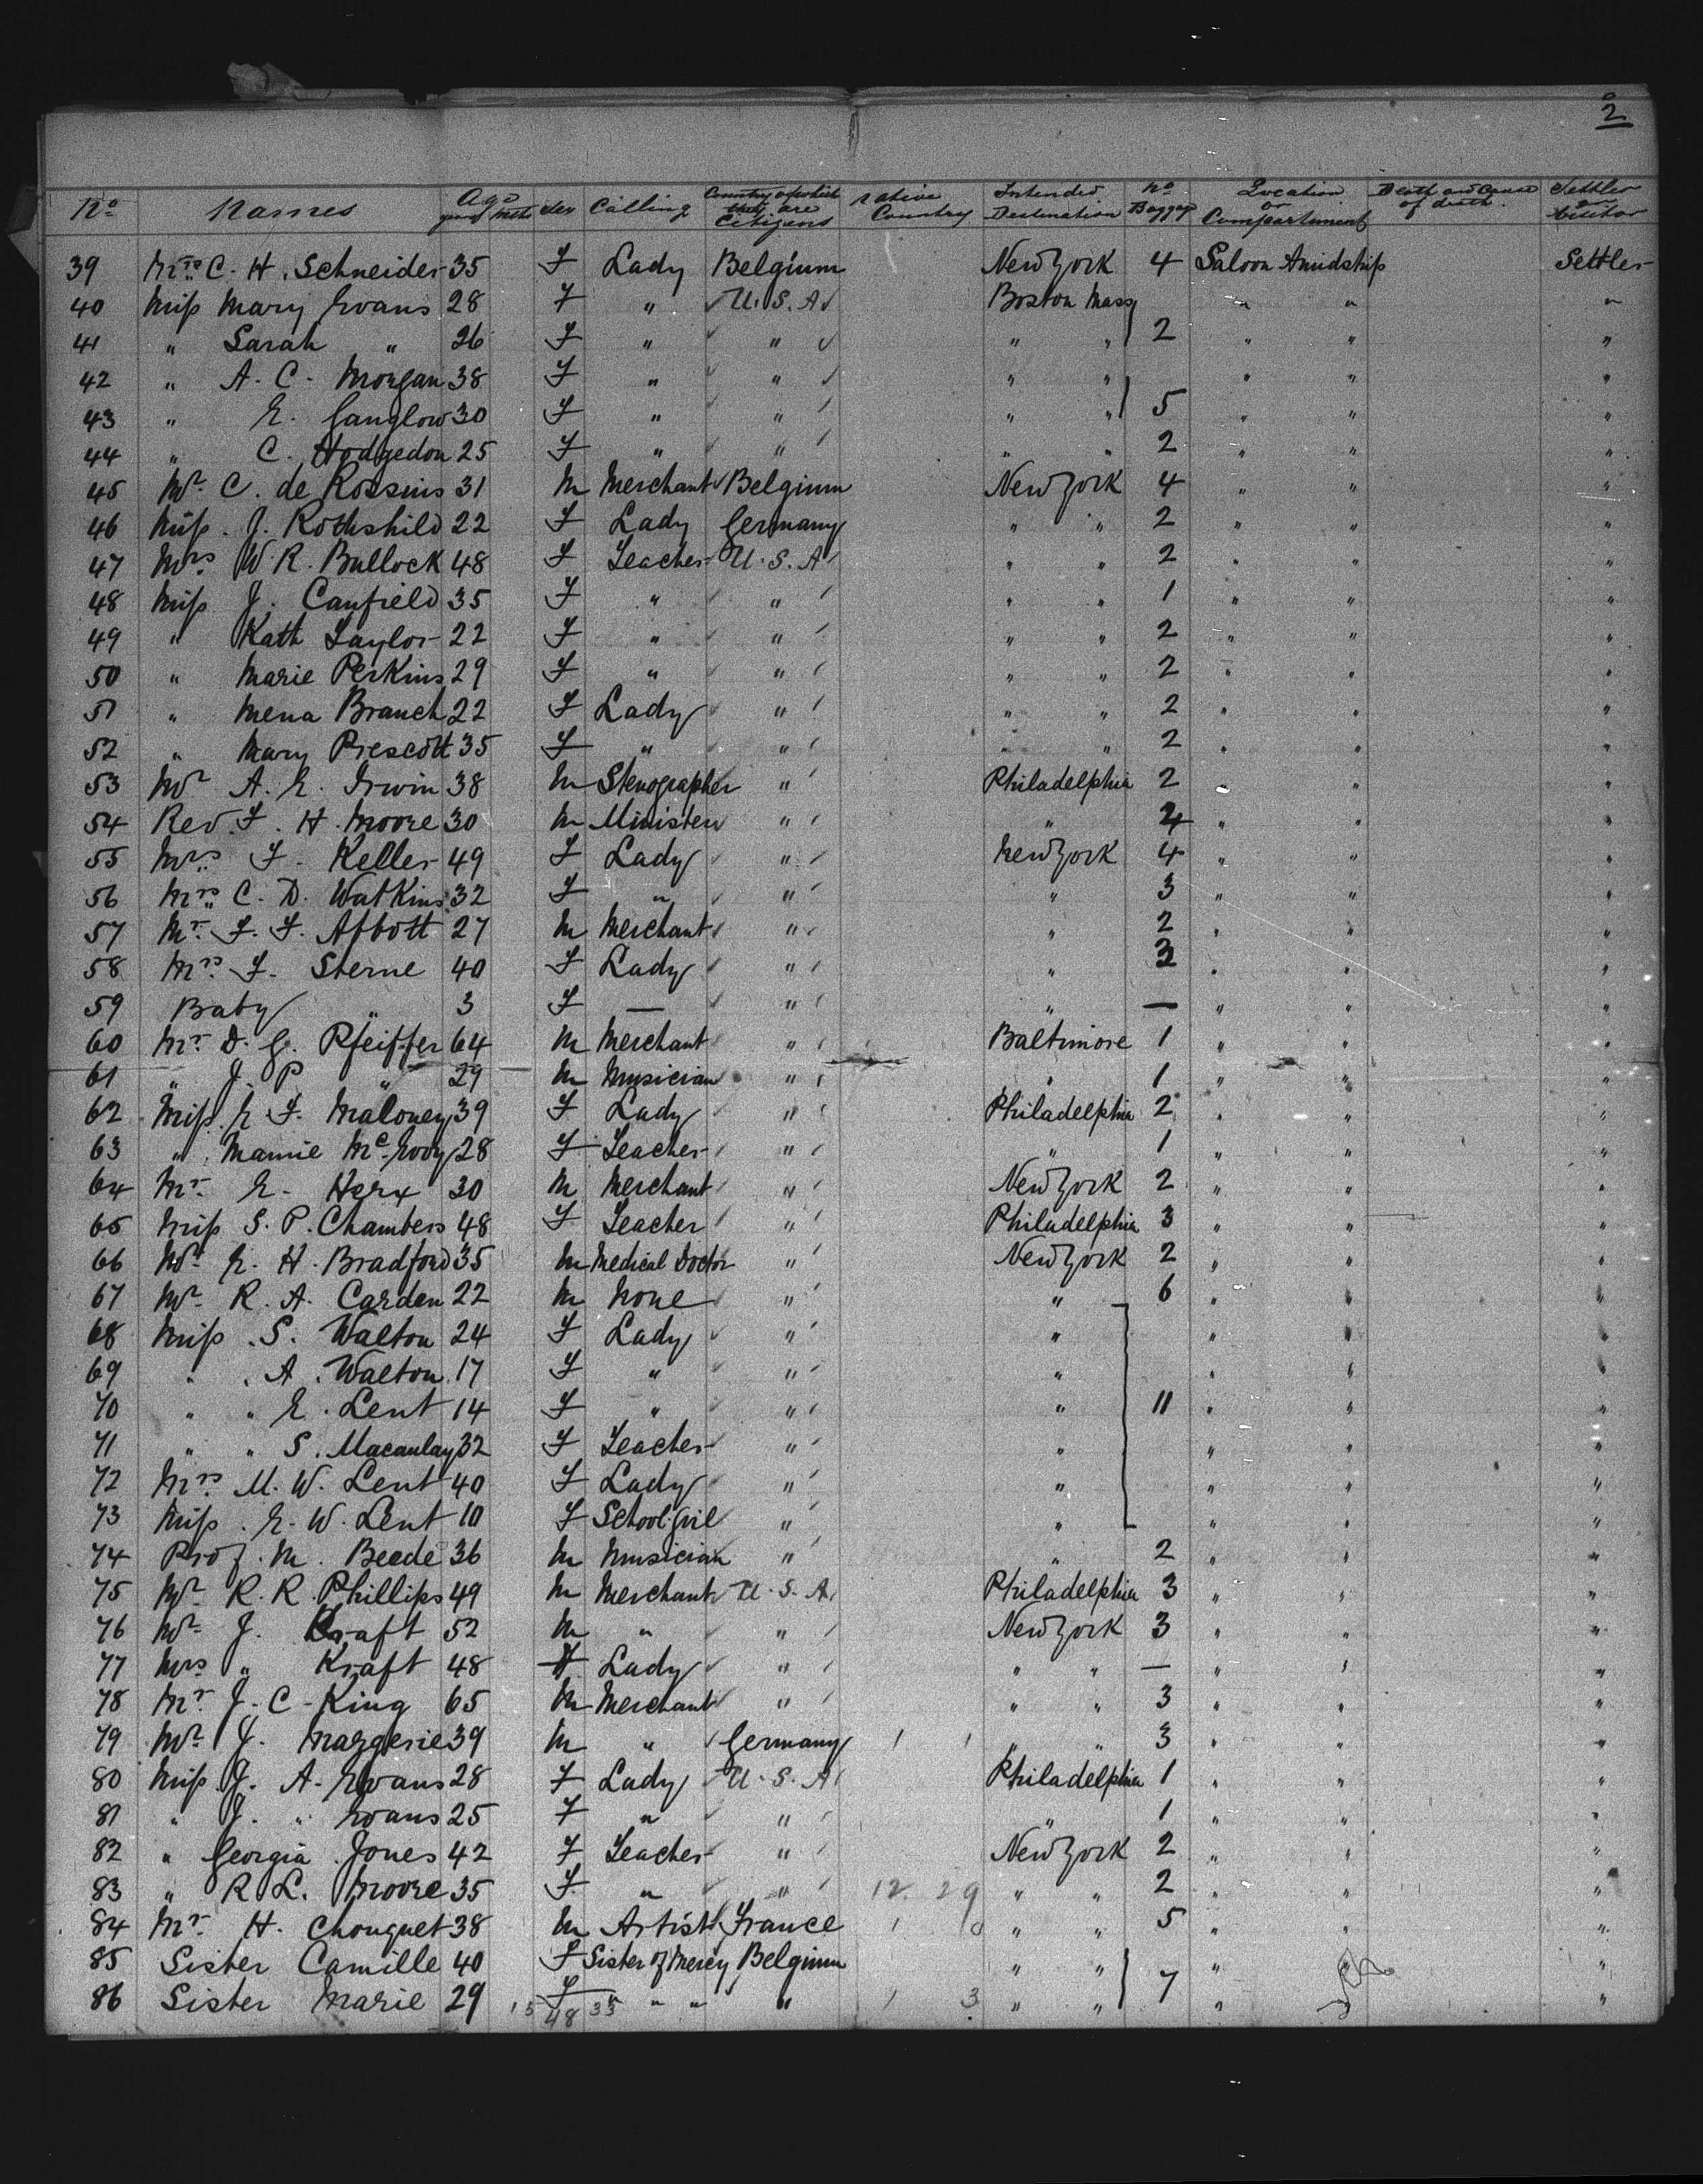 2
No Names Age years Mths Sex Calling Country of which they are Citizens Native Country Intended Destination No Baggage Location or Compartment Death and Cause of death. Settler or Visitor
39 Mrs. C. H. Schneider 35 F Lady Belgium New York 4 Saloon Amidship Settler
40 Miss Mary Evans 28 F " U.S.A. Boston Mass " " "
41 " Sarah " 26 F " " " " 2 " " "
42 " A. C. Morgan 38 F " " " " " " "
43 " E. Ganglow 30 F " " " " 5 " " "
44 " C. Hodgedon 25 F " " " " 2 " " "
45 Mr. C. de Rossius 31 M Merchant Belgium New York 4 " " "
46 Miss. J. Rothshild 22 F Lady Germany " " 2 " " "
47 Mrs. W. R. Bullock 48 F Teacher U.S.A " " 2 " " "
48 Miss J. Canfield 35 F " " " " 1 " " "
49 " Kath Taylor 22 F " " " " 2 " " "
50 " Marie Perkins 29 F " " " " 2 " " "
51 " Mena Branch 22 F Lady " " " 2 " " "
52 " Mary Prescott 35 F " " " " 2 " " "
53 Mr A. E. Irwin 38 M Stenographer " Philadelphia 2 " " "
54 Rev. F. H. Moore 30 M Minister " " 4 " " "
55 Mrs. F. Keller 49 F Lady " New York 4 " " "
56 Mrs. C. D. Watkins 32 F " " " 3 " " "
57 Mr. F. F. Abbott 27 M Merchant " " 2 " " "
58 Mrs. F. Sterne 40 F Lady " " 3 " " "
59 Baby " 3 F — " " — " " "
60 Mr. D. G. Pfeiffer 64 M Merchant " Baltimore 1 " " "
61 " J. P " 29 M Musician " " 1 " " "
62 Miss. E F. Maloney 39 F Lady " Philadelphia 2 " " "
63 " Mamie McEvoy 28 F Teacher " " 1 " " "
64 Mr. E. Herx 30 M Merchant " New York 2 " " "
65 Miss S. P. Chambers 48 F Teacher " Philadelphia 3 " " "
66 Mr. E. H. Bradford 35 M Medical Doctor " New York 2 " " "
67 Mr. R. A. Carden 22 M None " " 6 " " "
68 Miss. S. Walton 24 F Lady " " " " "
69 " . A. Walton 17 F " " " " " "
70 " " E. Lent 14 F " " " 11 " " "
71 " " S. Macaulay 32 F Teacher " " " " "
72 Mrs. M. W. Lent 40 F Lady " " " " "
73 Miss. E. W. Lent 10 F School-girl " " " " "
74 Prof. M. Beede 36 M Musician " " 2 " " "
75 Mr R. R. Phillips 49 M Merchant U.S.A. Philadelphia 3 " " "
76 Mr. J. Kraft 52 M " " New York 3 " " "
77 Mrs " Kraft 48 F Lady " " " — " " "
78 Mr. J. C. King 65 M Merchant " " " 3 " " "
79 Mr. J. Margerie 39 M " Germany 1 1 " " 3 " " "
80 Miss. J. A. Evans 28 F Lady U.S.A Philadelphia 1 " " "
81 " J. " Evans 25 F " " " 1 " " "
82 " Georgia Jones 42 F Teacher " New York 2 " " "
83 " R L. Moore 35 F. " " 12. 29 " " 2 " " "
84 Mr. H. Chouquet 38 M Artist France 1 " " 5 " " "
85 Sister Camille 40 F Sister of Mercy Belgium " " " " "
86 Sister Marie 29 F " " " " 1 3 " " 7 " "
15 48 33